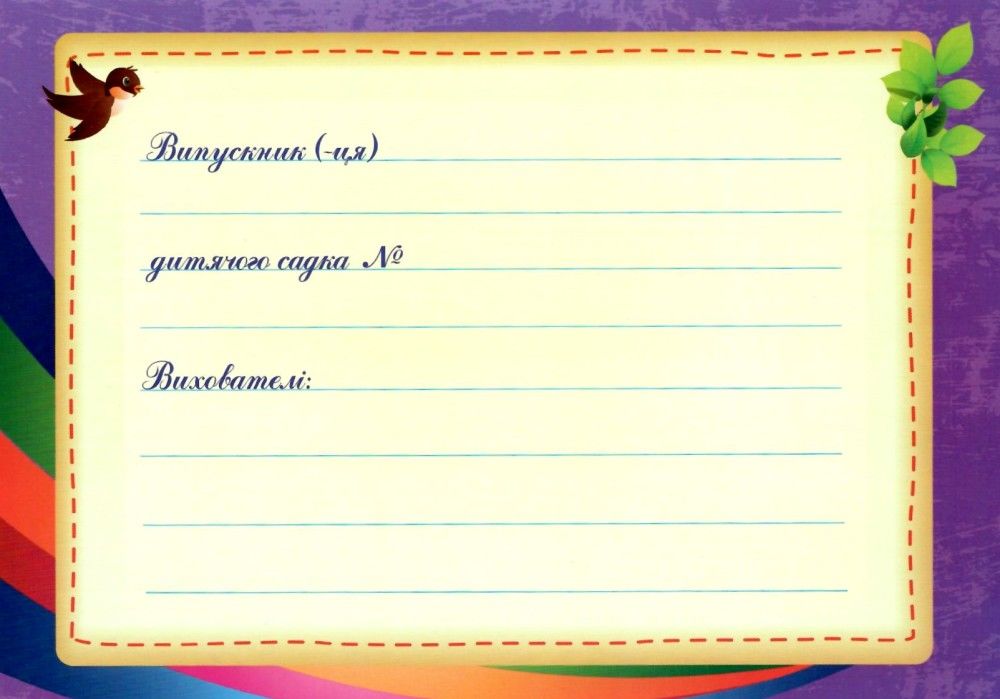 Випускник (-ця)
дитячого садка №
Вихователі: